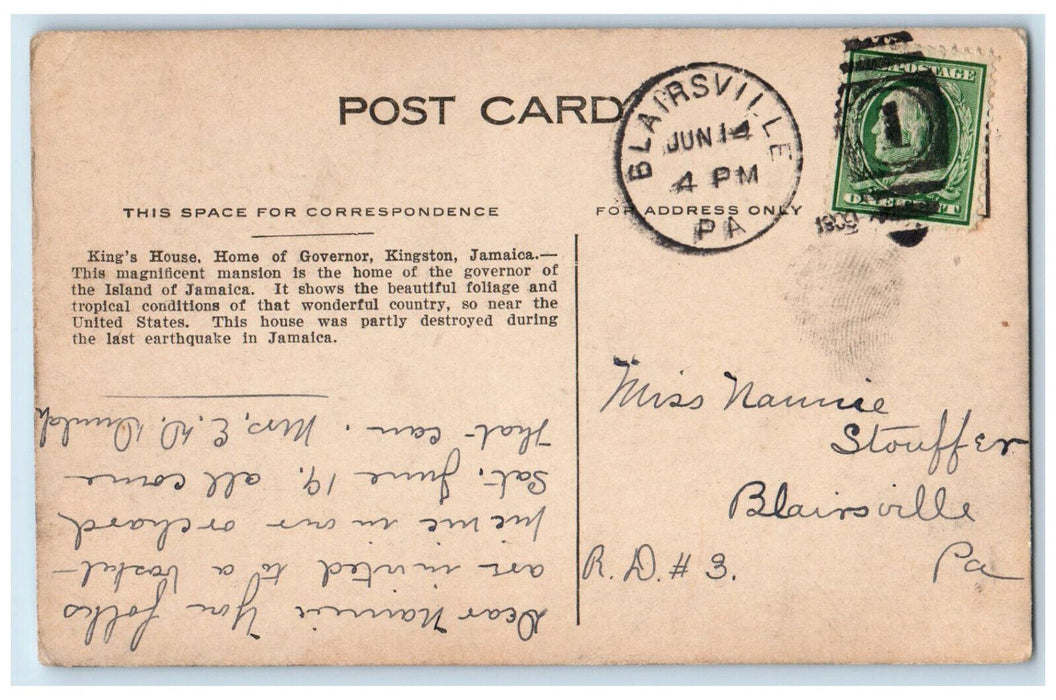 POST CARD
BLAIRSVILLE
JUN 14
4 PM
PA
1909
POSTAGE
ONE CENT
1
THIS SPACE FOR CORRESPONDENCE
FOR ADDRESS ONLY
King's House, Home of Governor, Kingston, Jamaica.—
This magnificent mansion is the home of the governor of
the Island of Jamaica. It shows the beautiful foliage and
tropical conditions of that wonderful country, so near the
United States. This house was partly destroyed during
the last earthquake in Jamaica.
Dear Nannie You folks
are invited to a basket
picnic in our orchard
Sat. June 19. all come
that can. Mrs. E. D.
Miss Nannie
Stouffer
Blairsville
R. D. # 3. Pa